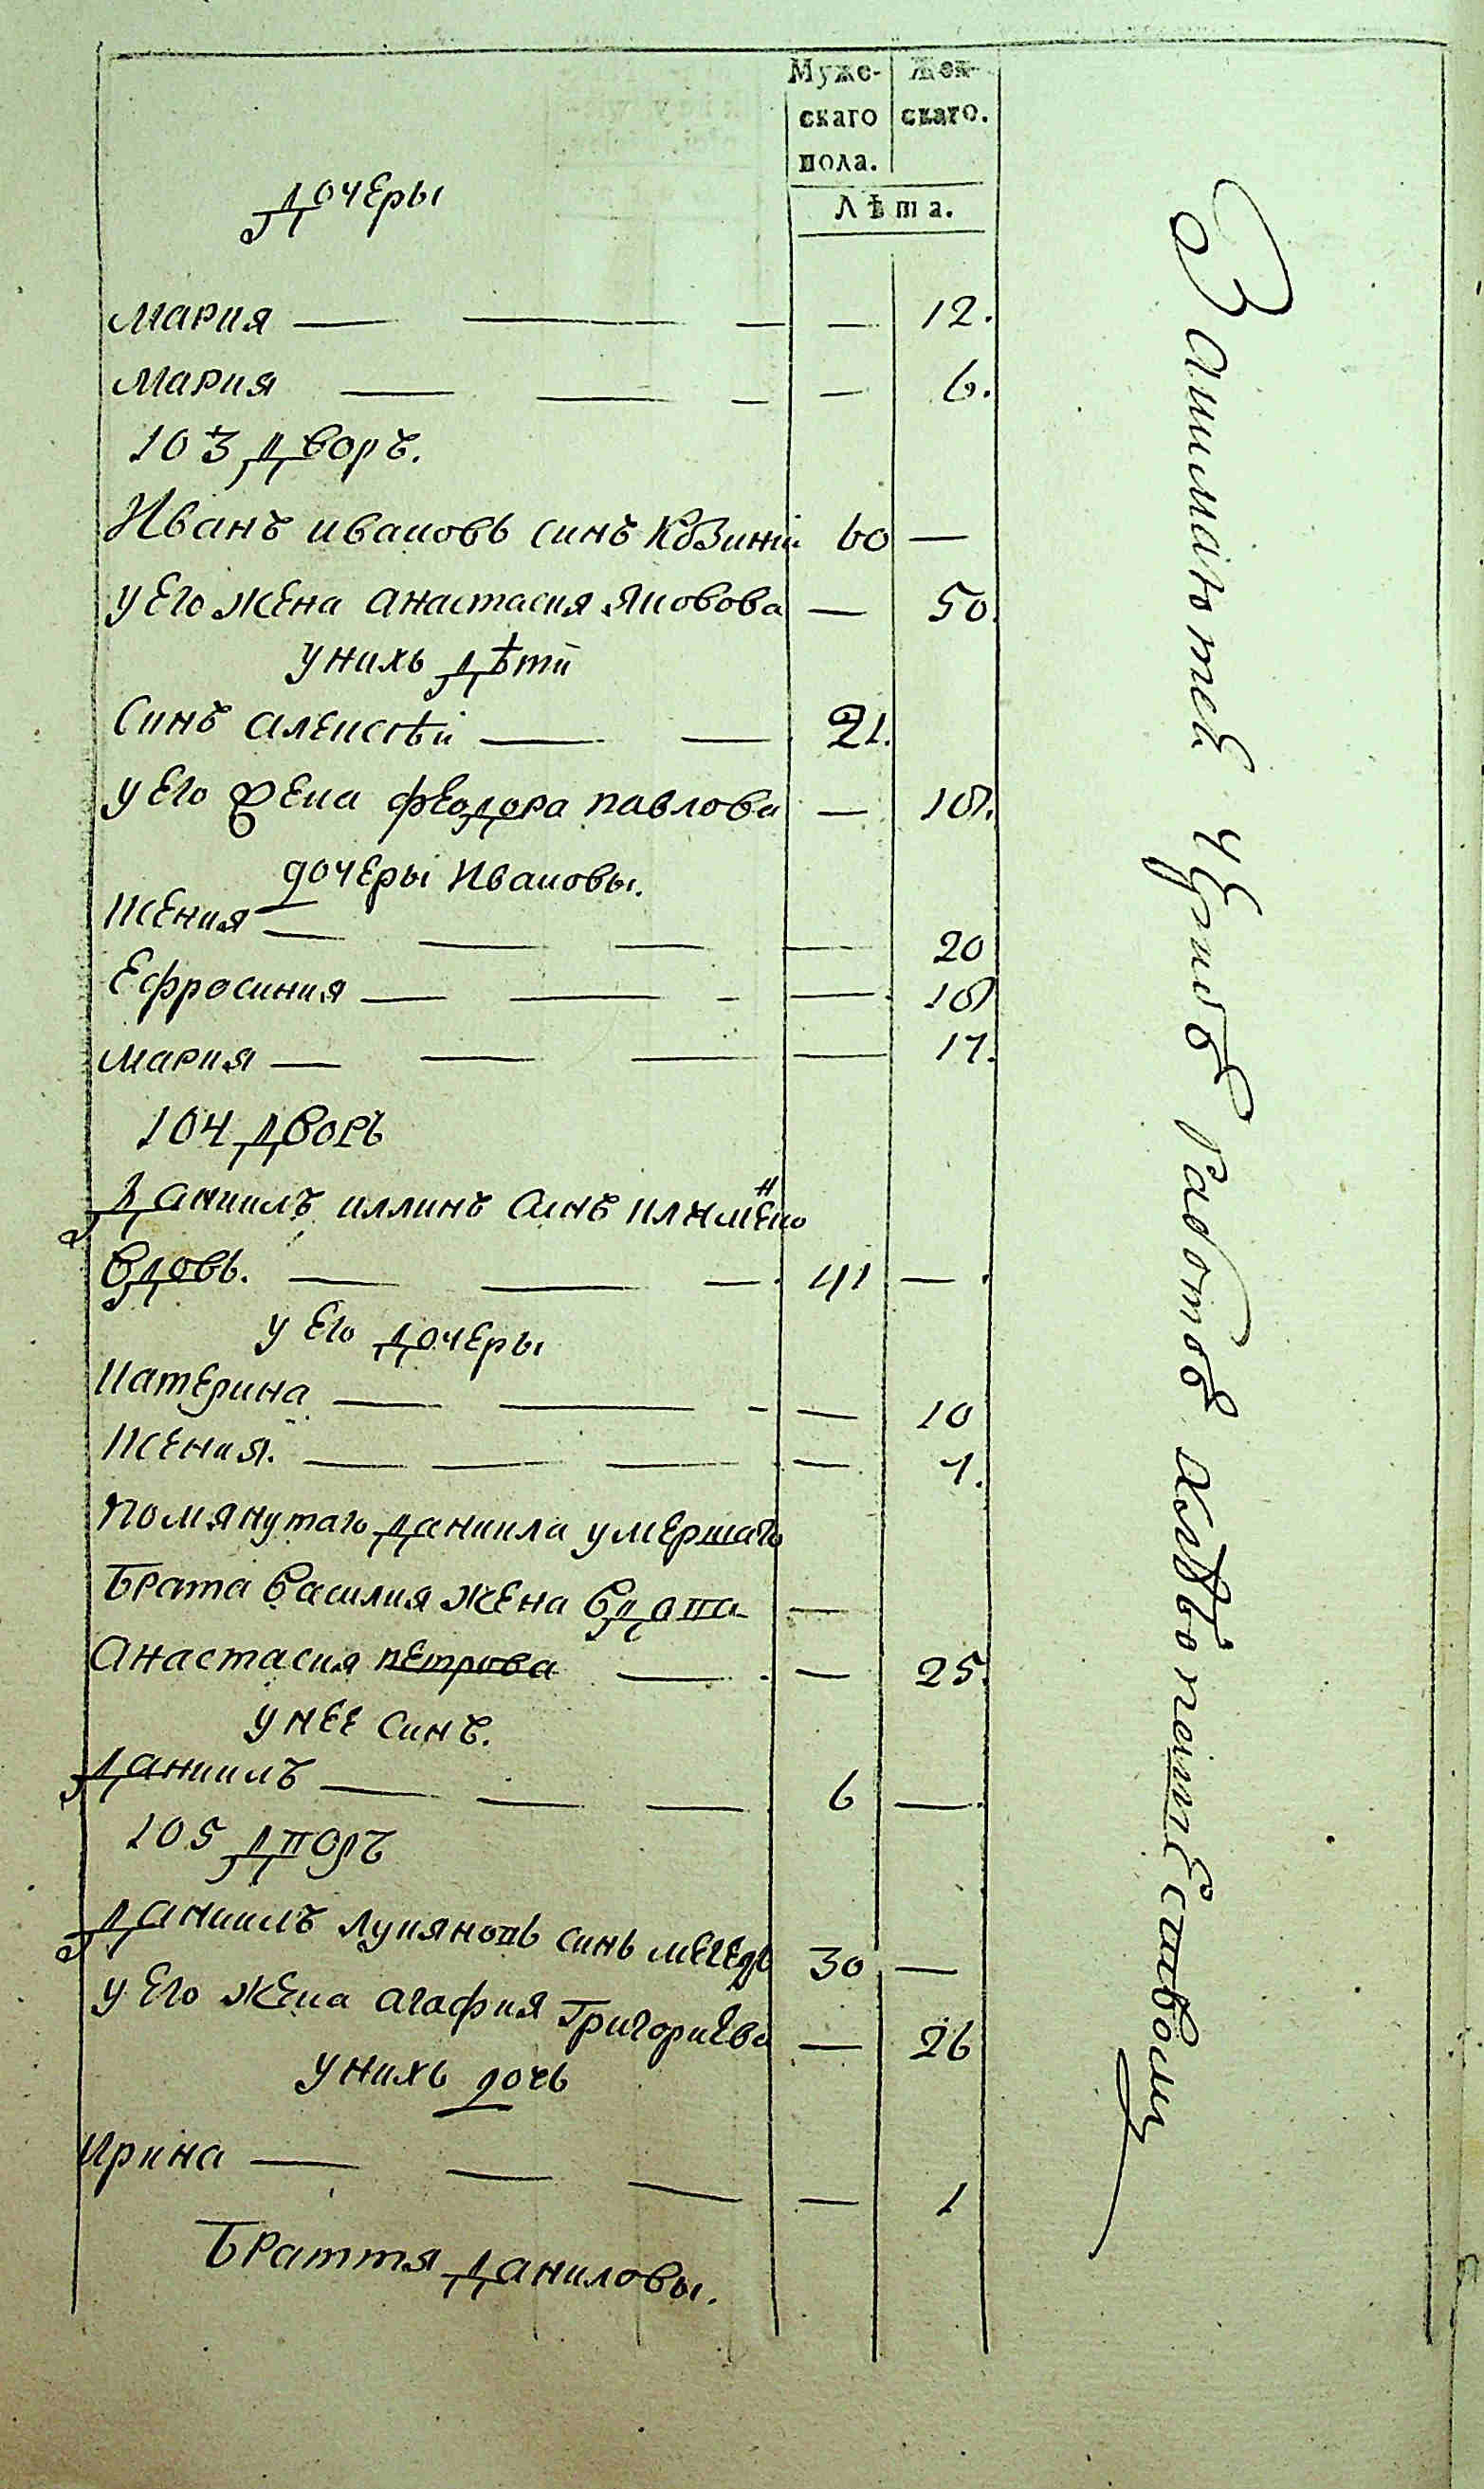 Муже- Жен-
скаго скаго.
пола.
Лѣта.
дочеры
Мария — — — — 12.
Мария — — — — 6.
103 дворъ.
Иванъ ивановь синъ Козиний 60 —
у его жена анастасия яковова — 50.
у нихь дѣти
Синъ алексѣй — — 21.
у его жена феодора павлова — 18.
дочеры Ивановы.
Ксения — — — — 20
Ефросиния — — — — 18
Мария — — — — 17.
104 дворъ
Даниилъ иллинъ синъ
вдовь. — — — 41 —
у его дочеры
Катерина — — — — 10
Ксения. — — — — 7.
Помянутаго даниила умершаго
брата василия жена вдова —
Анастасия петрова — — 25.
у нее синъ.
Даниилъ — — — 6 —
105 дворъ
Даниилъ лукяновь синь 30 —
у его жена агафия Григориева — 26
у нихь дочь
Ирина — — — — 1
Браття даниловы.